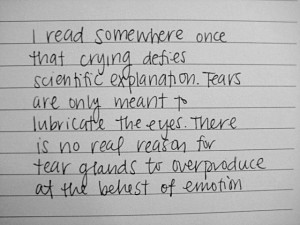 I read somewhere once
that crying defies
scientific explanation. Tears
are only meant to
lubricate the eyes. There
is no real reason for
tear glands to overproduce
at the behest of emotion